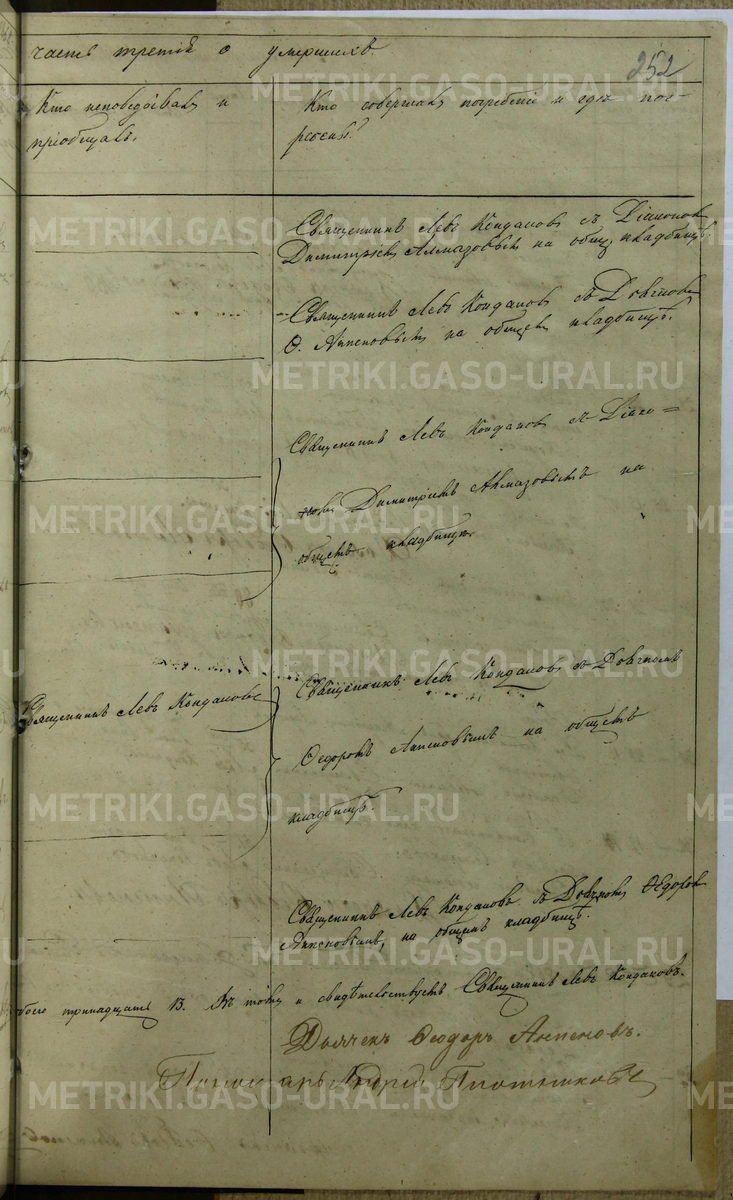 часть третія о умершихъ.
252
Кто исповедывалъ и
пріобщалъ.
Кто совершалъ погребеніе и гдѣ пог-
ребены?
Священникъ Левъ Кондаковъ съ Діакономъ
Димитріемъ Алмазовымъ на общемъ кладбищѣ.
Священникъ Левъ Кондаковъ съ Дьячкомъ
Ѳ. Аппеновымъ на общемъ кладбищѣ.
Священникъ Левъ Кондаковъ съ Діако=
номъ Димитріемъ Алмазовымъ на
общемъ кладбищѣ
Священникъ Левъ Кондаковъ
Священникъ Левъ Кондаковъ съ Дьячкомъ
Ѳедоромъ на общемъ
кладбищѣ.
Священникъ Левъ Кондаковъ съ Дьячкомъ Ѳедоромъ
на общемъ кладбищѣ.
обоего тринадцать 13. Въ томъ и свидѣтельствуетъ Священникъ Левъ Кондаковъ.
Дьячекъ Ѳеодоръ
Пономарь Андрей Плотниковъ
METRIKI.GASO-URAL.RU